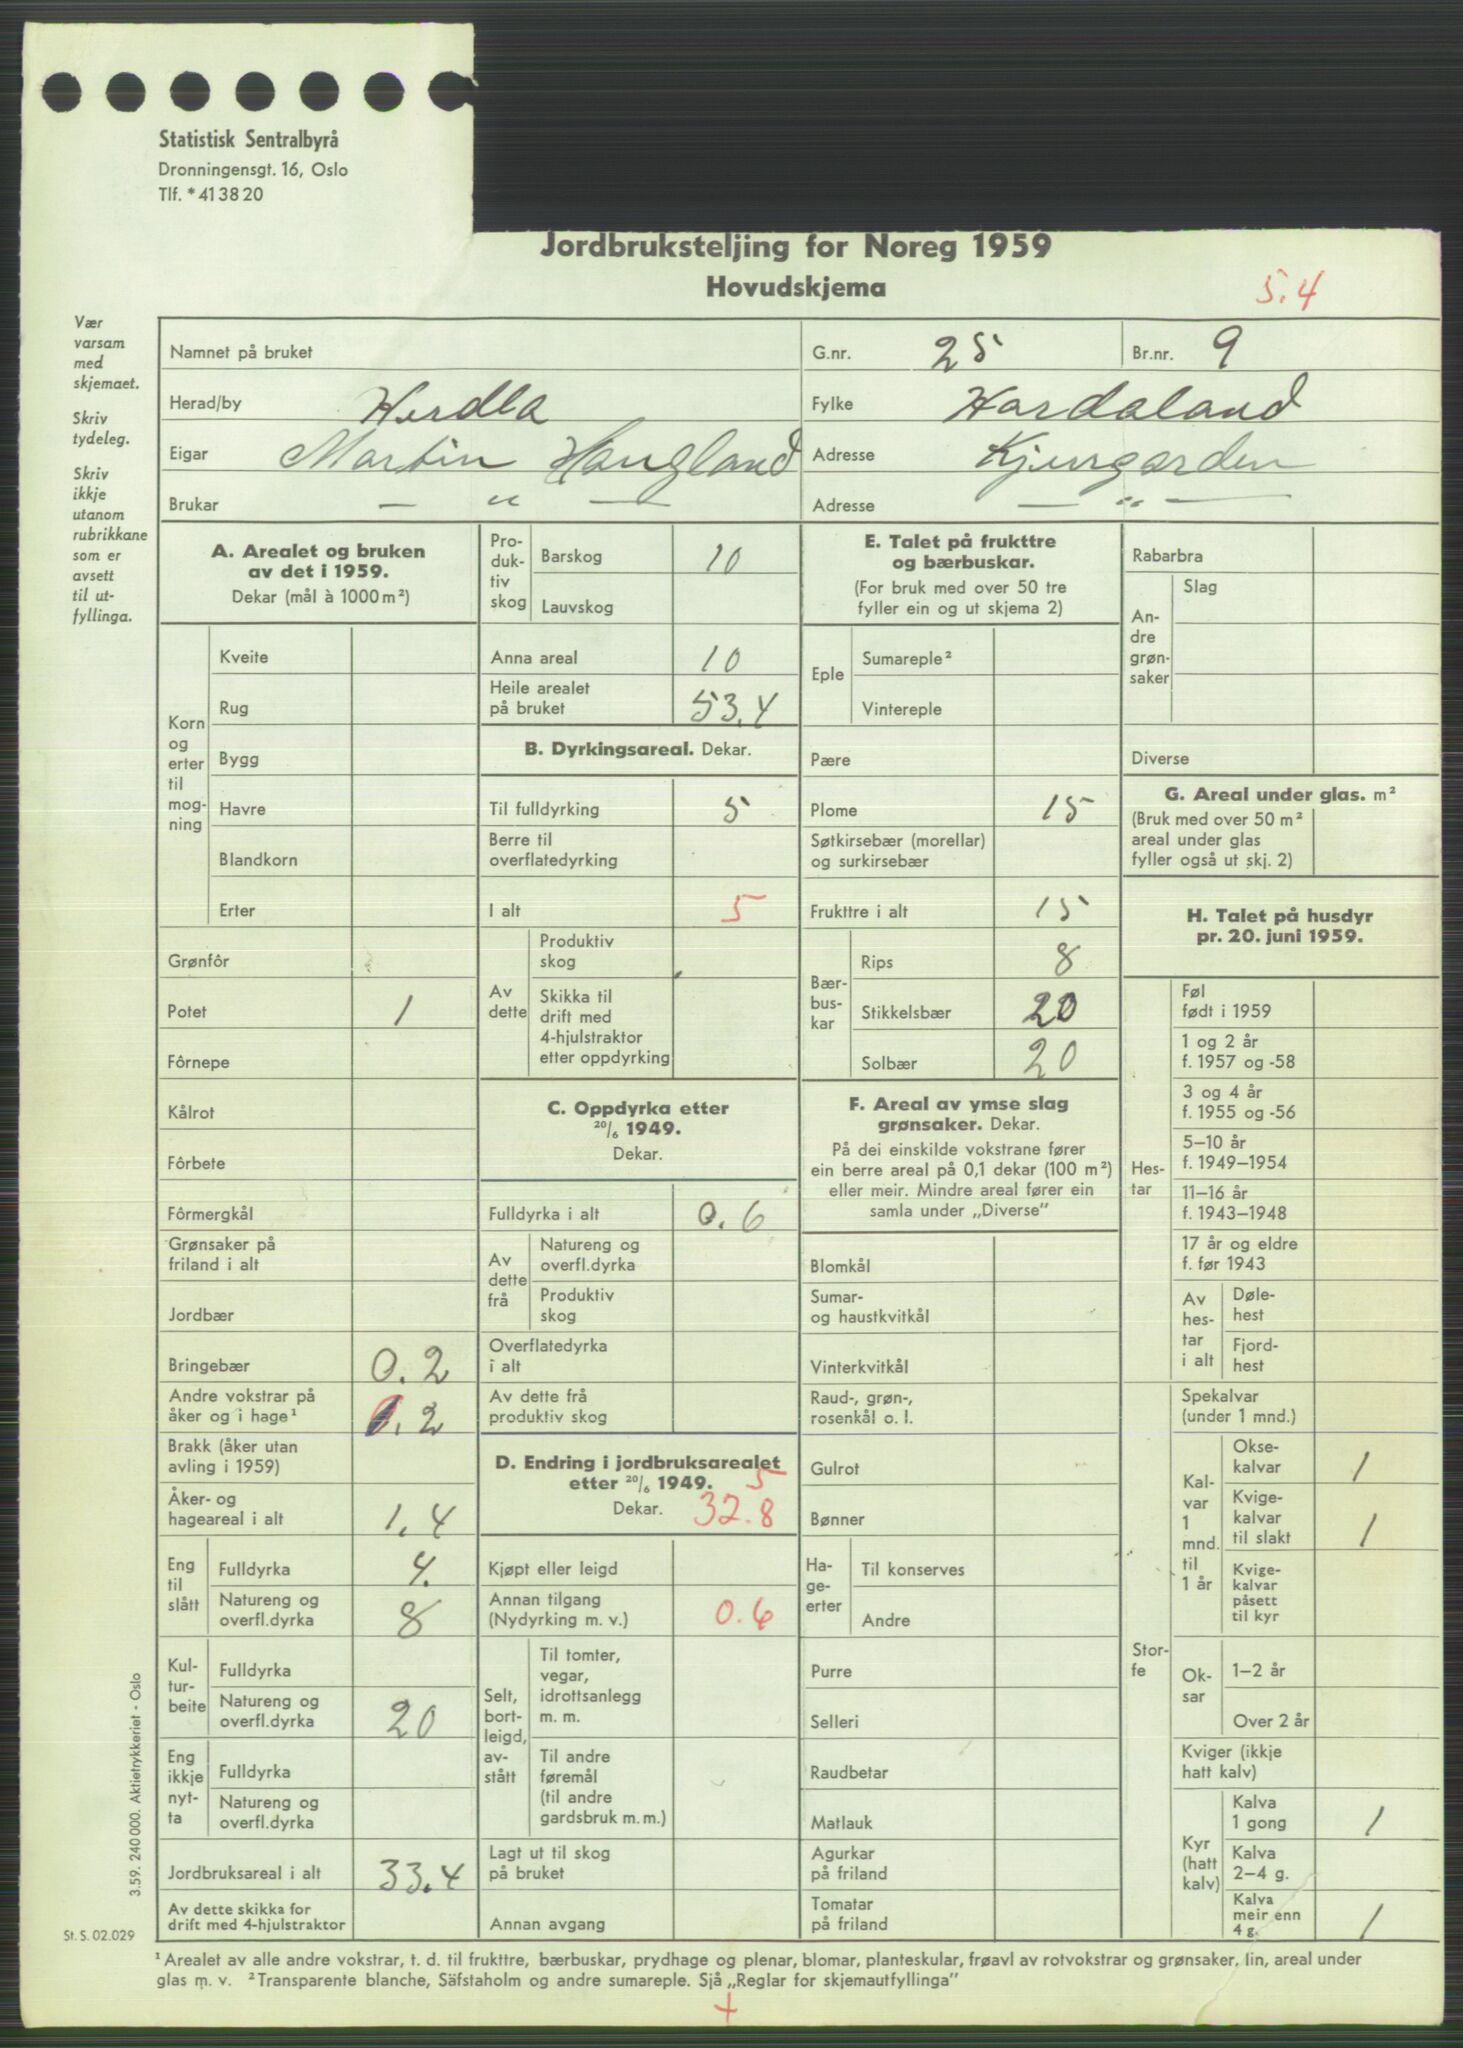 Statistisk Sentralbyrå
Dronningensgt. 16, Oslo
Tlf. *41 38 20
Jordbruksteljing for Noreg 1959
Hovudskjema
5.4
Vær
varsam
med
skjemaet.
Skriv
tydeleg.
Skriv
ikkje
utanom
rubrikkane
som er
avsett
til ut-
fyllinga.
Namnet på bruket
G.nr. 25 Br.nr. 9
Herad/by Herdla
Fylke Hordaland
Eigar Martin Haugland
Adresse
Brukar — " —
Adresse — " —
A. Arealet og bruken
av det i 1959.
Dekar (mål à 1000 m²)
Korn
og
erter
til
mog-
ning
Kveite
Rug
Bygg
Havre
Blandkorn
Erter
Grønfôr
Potet 1
Fôrnepe
Kålrot
Fôrbete
Fôrmergkål
Grønsaker på
friland i alt
Jordbær
Bringebær 0.2
Andre vokstrar på
åker og i hage¹ 0.2
Brakk (åker utan
avling i 1959)
Åker- og
hageareal i alt 1,4
Eng
til
slått
Fulldyrka 4.
Natureng og
overfl.dyrka 8
Kul-
tur-
beite
Fulldyrka
Natureng og
overfl.dyrka 20
Eng
ikkje
nyt-
ta
Fulldyrka
Natureng og
overfl.dyrka
Jordbruksareal i alt 33.4
Av dette skikka for
drift med 4-hjulstraktor
Pro-
duk-
tiv
skog
Barskog 10
Lauvskog
Anna areal 10
Heile arealet
på bruket 53.4
B. Dyrkingsareal. Dekar.
Til fulldyrking 5
Berre til
overflatedyrking
I alt 5
Av
dette
Produktiv
skog
Skikka til
drift med
4-hjulstraktor
etter oppdyrking
C. Oppdyrka etter
20/6 1949.
Dekar.
Fulldyrka i alt 0.6
Av
dette
frå
Natureng og
overfl.dyrka
Produktiv
skog
Overflatedyrka
i alt
Av dette frå
produktiv skog
D. Endring i jordbruksarealet
etter 20/6 1949. 5
Dekar. 32.8
Kjøpt eller leigd
Annan tilgang
(Nydyrking m. v.) 0.6
Selt,
bort-
leigd,
av-
stått
Til tomter,
vegar,
idrottsanlegg
m. m.
Til andre
føremål
(til andre
gardsbruk m.m.)
Lagt ut til skog
på bruket
Annan avgang
E. Talet på frukttre
og bærbuskar.
(For bruk med over 50 tre
fyller ein og ut skjema 2)
Eple
Sumareple²
Vintereple
Pære
Plome 15
Søtkirsebær (morellar)
og surkirsebær
Frukttre i alt 15
Bær-
bus-
kar
Rips 8
Stikkelsbær 20
Solbær 20
F. Areal av ymse slag
grønsaker. Dekar.
På dei einskilde vokstrane fører
ein berre areal på 0,1 dekar (100 m²)
eller meir. Mindre areal fører ein
samla under „Diverse”
Blomkål
Sumar-
og haustkvitkål
Vinterkvitkål
Raud-, grøn-,
rosenkål o. l.
Gulrot
Bønner
Ha-
ge-
erter
Til konserves
Andre
Purre
Selleri
Raudbetar
Matlauk
Agurkar
på friland
Tomatar
på friland
Rabarbra
An-
dre
grøn-
saker
Slag
Diverse
G. Areal under glas. m²
(Bruk med over 50 m²
areal under glas
fyller også ut skj. 2)
H. Talet på husdyr
pr. 20. juni 1959.
Hes-
tar
Føl
født i 1959
1 og 2 år
f. 1957 og -58
3 og 4 år
f. 1955 og -56
5–10 år
f. 1949–1954
11–16 år
f. 1943–1948
17 år og eldre
f. før 1943
Av
hes-
tar
i alt
Døle-
hest
Fjord-
hest
Stor-
fe
Spekalvar
(under 1 mnd.)
Kal-
var
1
mnd.
til
1 år
Okse-
kalvar 1
Kvige-
kalvar
til slakt 1
Kvige-
kalvar
påsett
til kyr
Ok-
sar
1–2 år
Over 2 år
Kviger (ikkje
hatt kalv)
Kyr
(hatt
kalv)
Kalva
1 gong 1
Kalva
2–4 g.
Kalva
meir enn
4 g. 1
3.59. 240 000. Aktietrykkeriet - Oslo
St. S. 02.029
¹ Arealet av alle andre vokstrar, t. d. til frukttre, bærbuskar, prydhage og plenar, blomar, planteskular, frøavl av rotvokstrar og grønsaker, lin, areal under
glas m. v. ² Transparente blanche, Säfstaholm og andre sumareple. Sjå „Reglar for skjemautfyllinga”
+